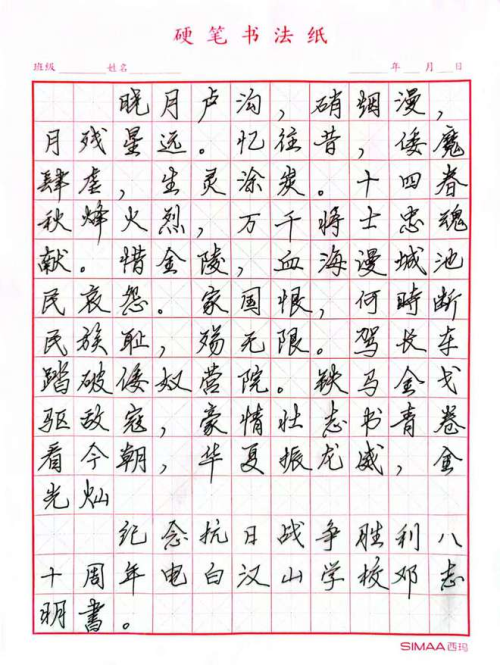 硬笔书法纸
班级 姓名 年 月 日
晓月卢沟，硝烟漫，
月残星远。忆往昔，倭魔
肆虐，生灵涂炭。十四春
秋烽火烈，万千将士忠魂
献。惜金陵，血海漫城池
民哀怨。家国恨，何時断
民族耻，殇无限。驾长车
踏破倭奴营院。铁马金戈
驱敌寇，豪情壮志书青卷
看今朝，华夏振龙威，金
光灿
纪念抗日战争胜利八
十周年电白汉山学校邓志
明書。
SIMAA西玛